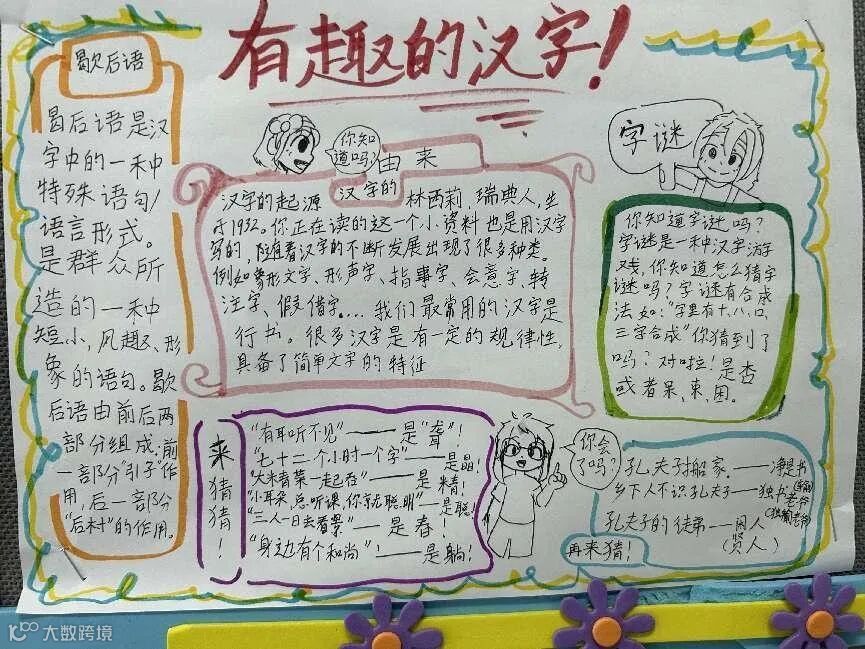 有趣的汉字！
歇后语
曷后语是汉
字中的一种
特殊语句/
语言形式。
是群众所
造的一种
短小,风趣、形
象的语句。歇
后语由前后两
部分组成:前
一部分“引子”作
用,后一部分
“后衬”的作用。
你知
道吗?
由来
汉字的
汉字的起源
林西莉,瑞典人,生
于1932。你正在读的这一个小资料也是用汉字
写的,随着汉字的不断发展出现了很多种类。
例如象形文字、形声字、指事字、会意字、转
注字、假借字....我们最常用的汉字是
行书。很多汉字是有一定的规律性,
具备了简单文字的特征
字谜
你知道字谜吗?
字谜是一种汉字游
戏,你知道怎么猜字
谜吗?字谜有合成
法如:“字里有十、八、口,
三字合成”你猜到了
吗?对啦!是杏
或者呆,束,困。
来猜猜!
“有耳听不见”——是“聋”!
“七十二个小时一个字”——是晶!
“大米青菜一起吞”——是精!
“小耳朵,总听课,你就聪明”——是聪!
“三人一日去看景”——是春!
“身边有个和尚”!——是躺!
你会
了吗?
孔夫子搬家.——净是书
乡下人不识孔夫子——独书老爷
孔夫子的徒弟——闲人
(贤人)
再来猜!
大数跨境